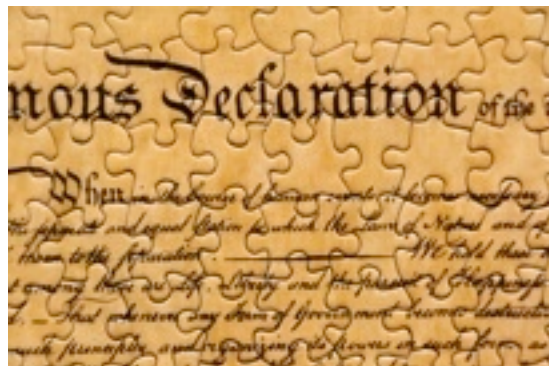 mous Declaration of the
When in the Course of human events, it becomes necessary
the separate and equal station to which the Laws of Nature and of
them to the separation. We hold these
among these are Life, Liberty and the pursuit of Happiness
That whenever any Form of Government becomes destructive
such principles and organizing its powers in such form, as